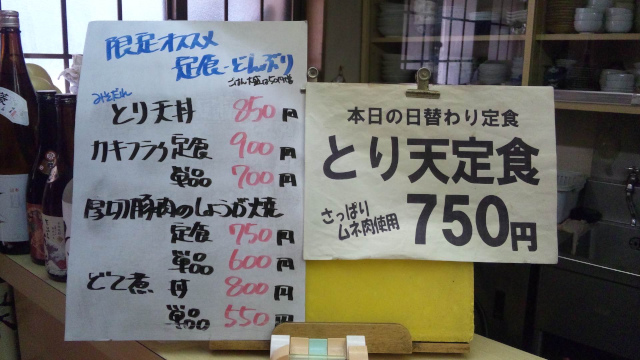 限定オススメ
定食・どんぶり
ごはん大盛
みそだれ
とり天丼 850円
カキフライ定食 900円
単品 700円
厚切豚肉のしょうが焼
定食 750円
単品 600円
どて煮 丼 800円
単品 550円
本日の日替わり定食
とり天定食
さっぱり
ムネ肉使用
750円